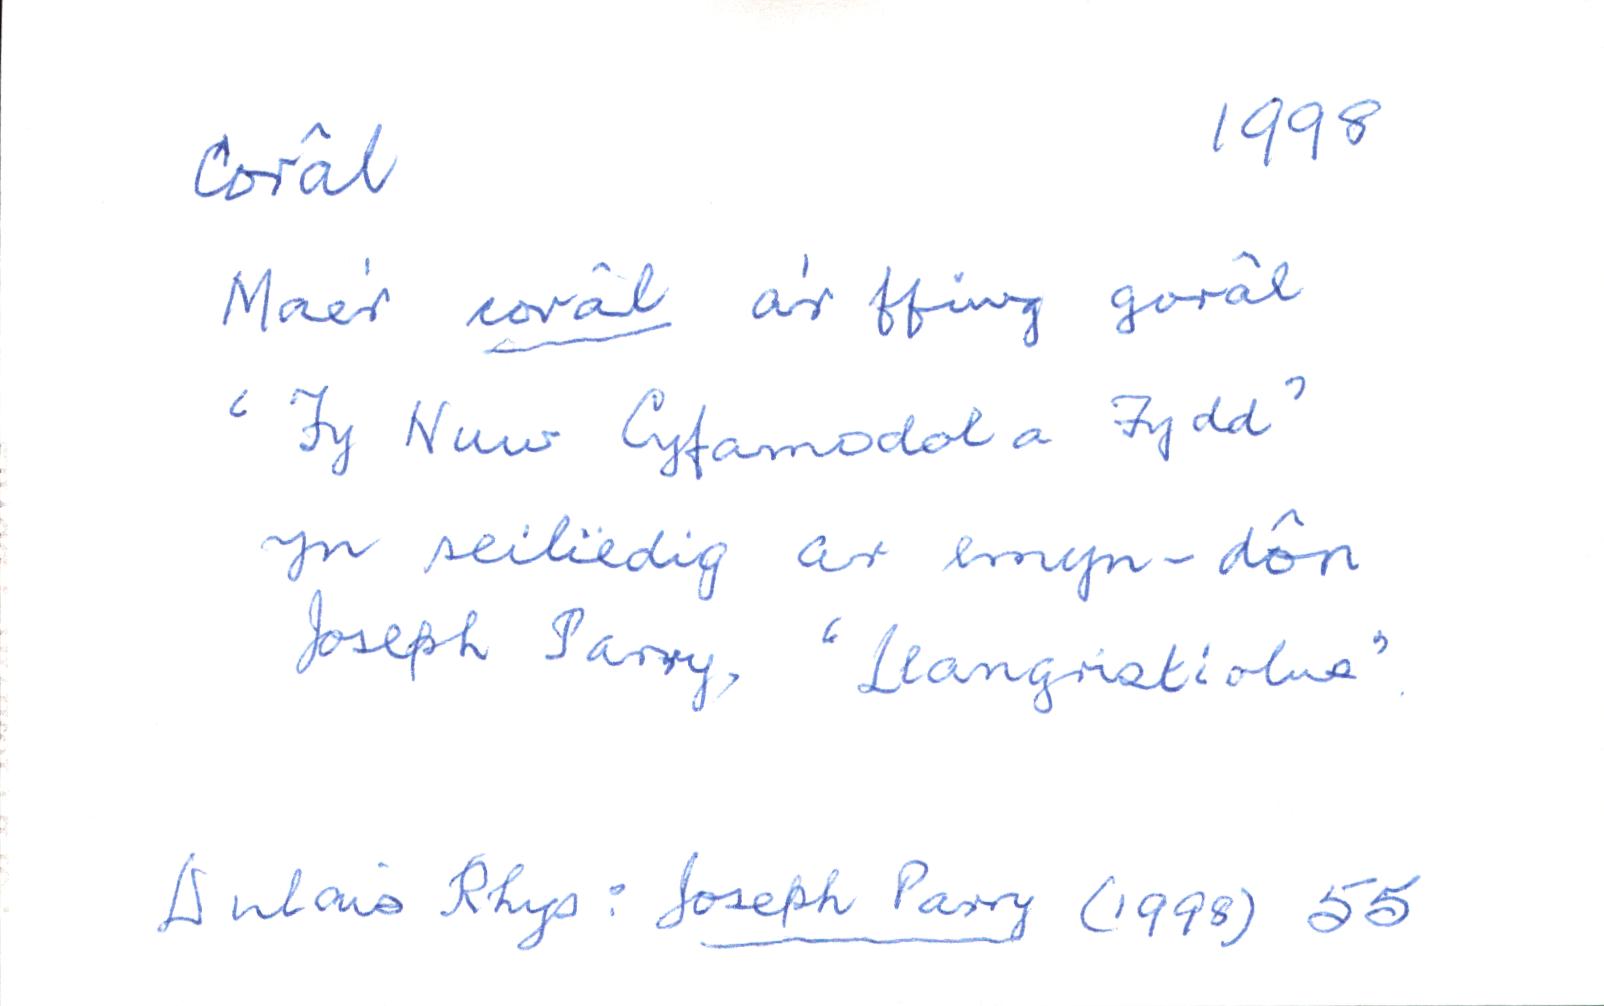 Corâl 1998
Mae'r corâl a'r ffiwg gorâl
‘Fy Nuw Cyfamodol a Fydd’
yn seilïedig ar emyn-dôn
Joseph Parry, ‘Llangristiolus’.
Dulais Rhys: Joseph Parry (1998) 55